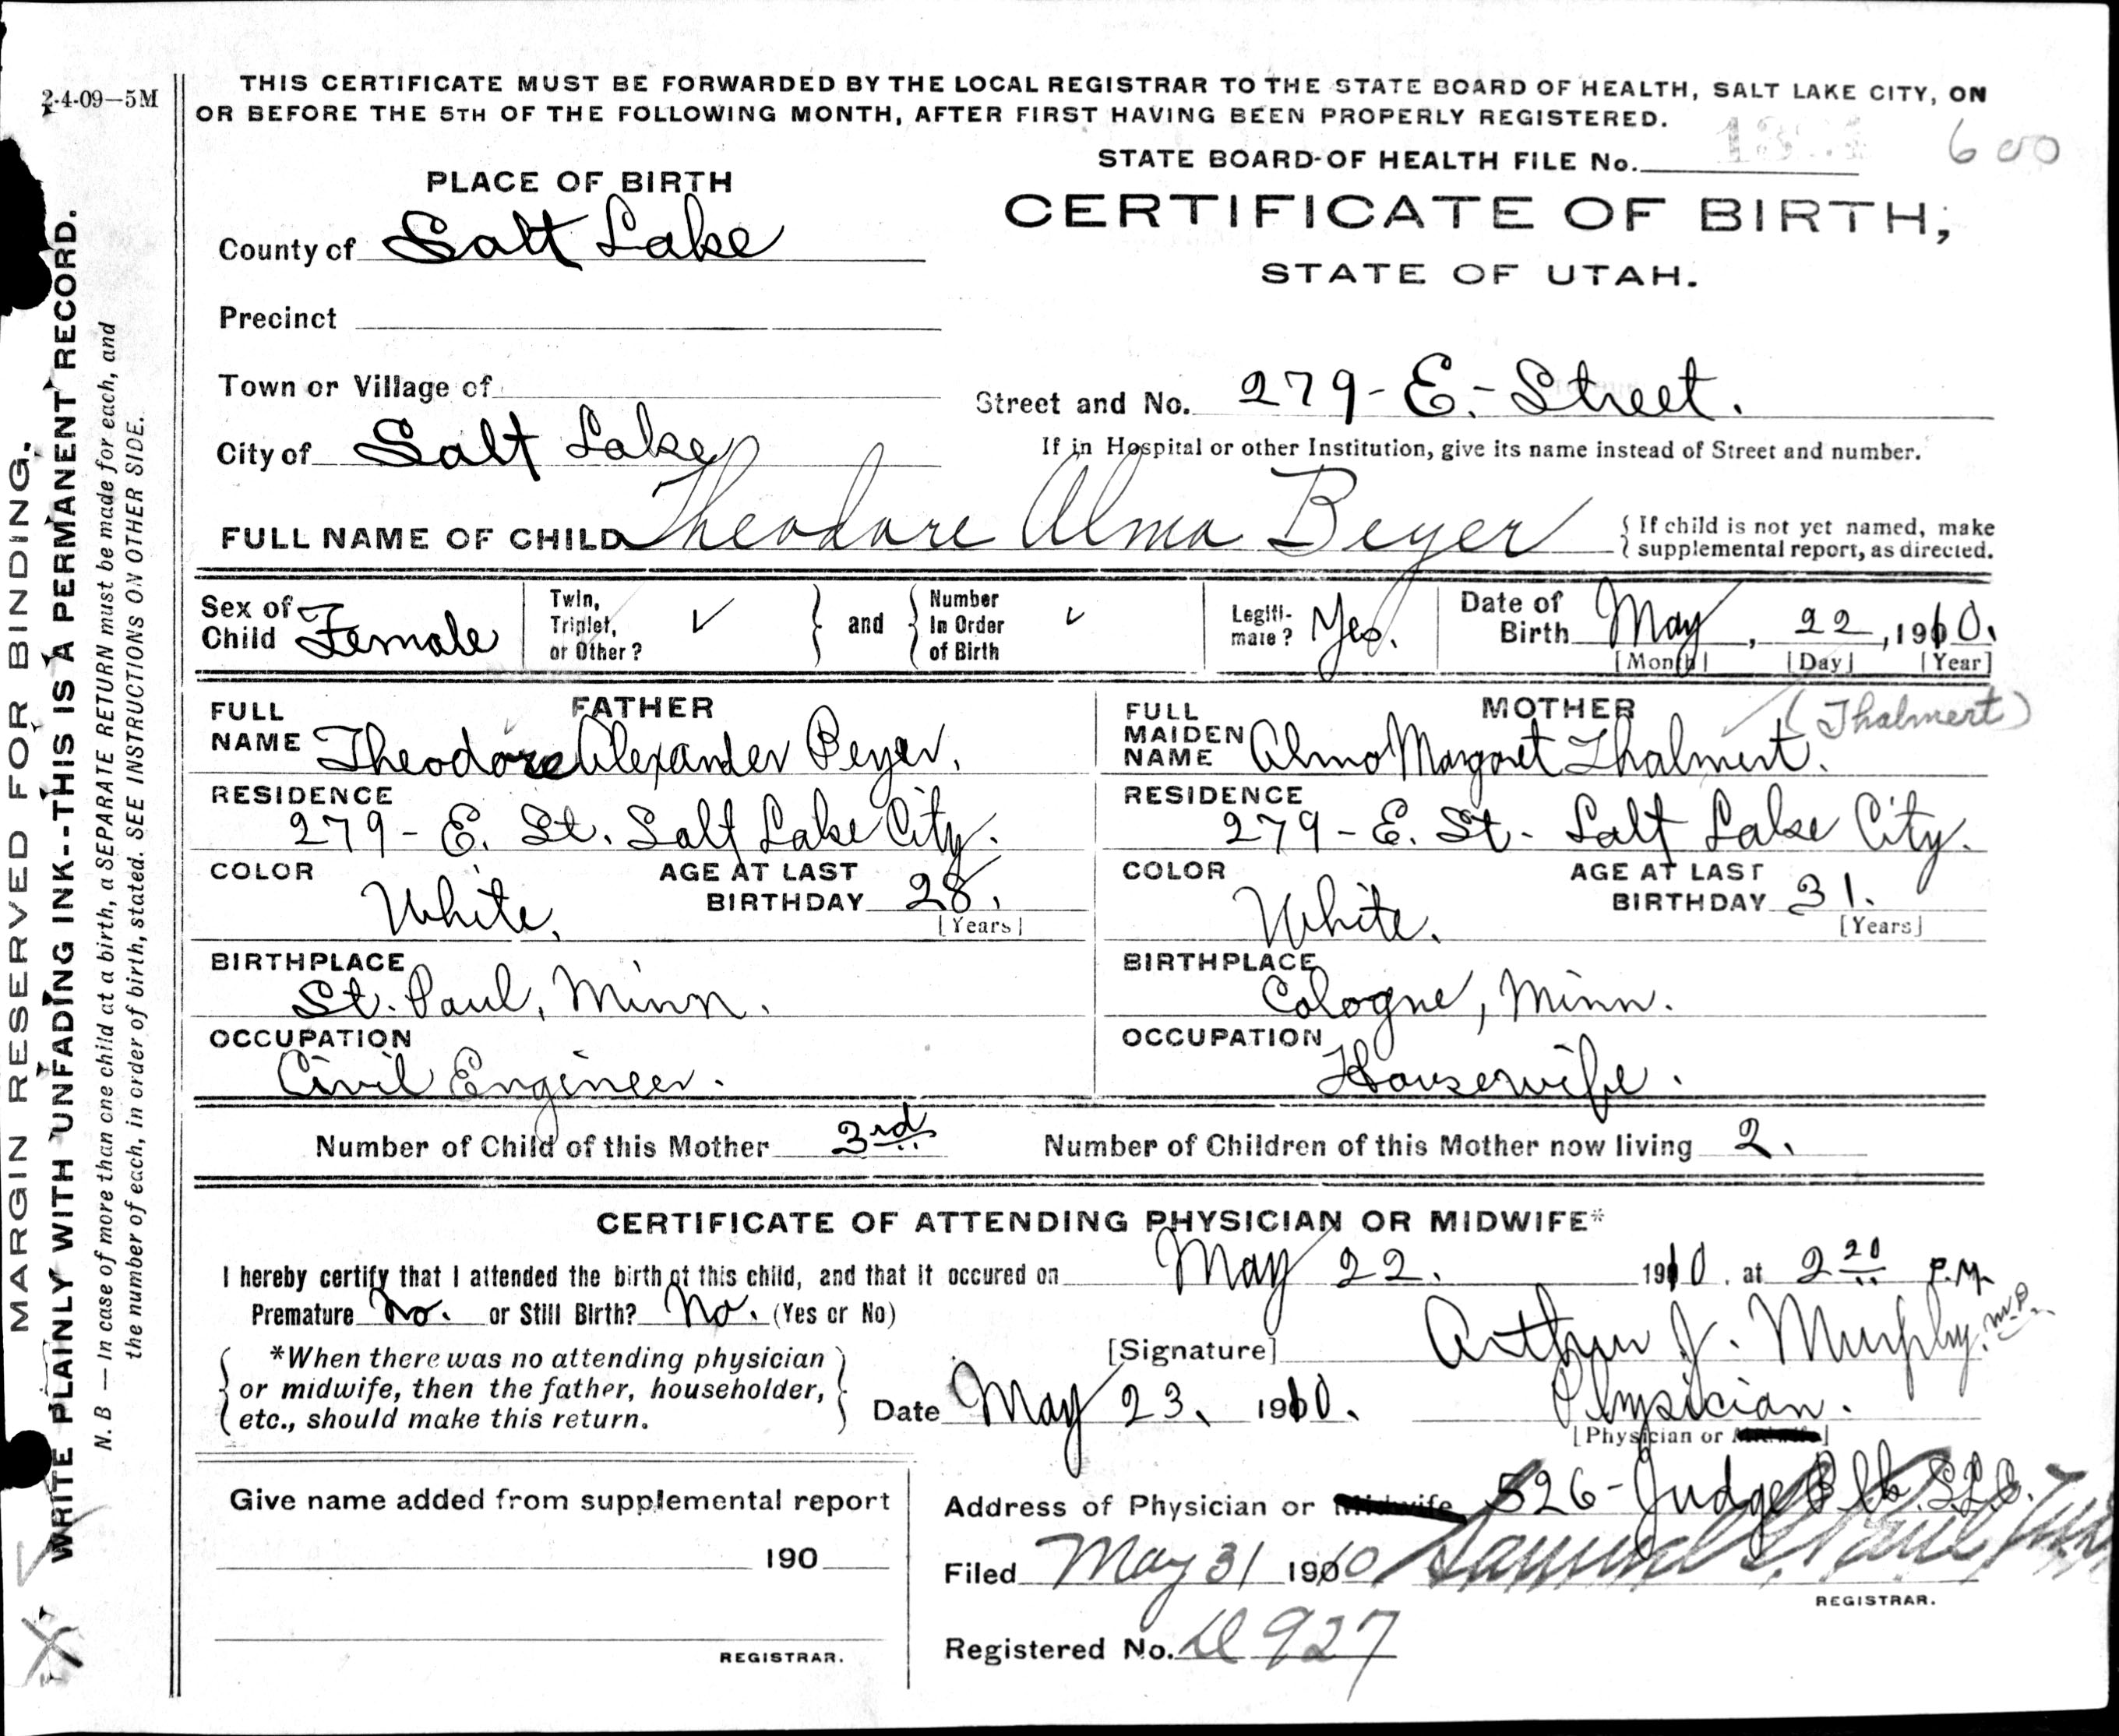 2-4-09—5M
THIS CERTIFICATE MUST BE FORWARDED BY THE LOCAL REGISTRAR TO THE STATE BOARD OF HEALTH, SALT LAKE CITY, ON
OR BEFORE THE 5TH OF THE FOLLOWING MONTH, AFTER FIRST HAVING BEEN PROPERLY REGISTERED.
STATE BOARD OF HEALTH FILE No. 600
PLACE OF BIRTH
CERTIFICATE OF BIRTH,
STATE OF UTAH.
County of Salt Lake
Precinct
Town or Village of
Street and No. 279 - E. - Street.
City of Salt Lake
If in Hospital or other Institution, give its name instead of Street and number.
FULL NAME OF CHILD Theodore Alma Beyer
{ If child is not yet named, make
supplemental report, as directed.
Sex of Child Female
Twin, Triplet, or Other? ✓ } and { Number In Order of Birth ✓
Legitimate? Yes.
Date of Birth May, 22, 1910.
[Month] [Day] [Year]
FATHER
FULL NAME Theodore Alexander Beyer.
RESIDENCE
279 - E. St. Salt Lake City.
COLOR White.
AGE AT LAST BIRTHDAY 28.
[Years]
BIRTHPLACE
St. Paul, Minn.
OCCUPATION
Civil Engineer.
MOTHER (Thalmert)
FULL MAIDEN NAME Alma Margaret Thalmert.
RESIDENCE
279 - E. St - Salt Lake City.
COLOR White.
AGE AT LAST BIRTHDAY 31.
[Years]
BIRTHPLACE
Cologne, Minn.
OCCUPATION
Housewife.
Number of Child of this Mother 3rd Number of Children of this Mother now living 2.
CERTIFICATE OF ATTENDING PHYSICIAN OR MIDWIFE*
I hereby certify that I attended the birth of this child, and that it occured on May 22. 1910. at 2 20 P.M.
Premature No. or Still Birth? No. (Yes or No)
[Signature] Arthur J. Murphy. M.D.
*When there was no attending physician
or midwife, then the father, householder,
etc., should make this return.
Date May 23. 1910.
Physician.
[Physician or Midwife]
Address of Physician or Midwife 526 - Judge Blk. S.L.C.
Give name added from supplemental report
190
REGISTRAR.
Filed May 31 1910 Samuel G. Paul
REGISTRAR.
Registered No. 927
MARGIN RESERVED FOR BINDING.
WRITE PLAINLY WITH UNFADING INK--THIS IS A PERMANENT RECORD.
N. B — In case of more than one child at a birth, a SEPARATE RETURN must be made for each, and
the number of each, in order of birth, stated. SEE INSTRUCTIONS ON OTHER SIDE.